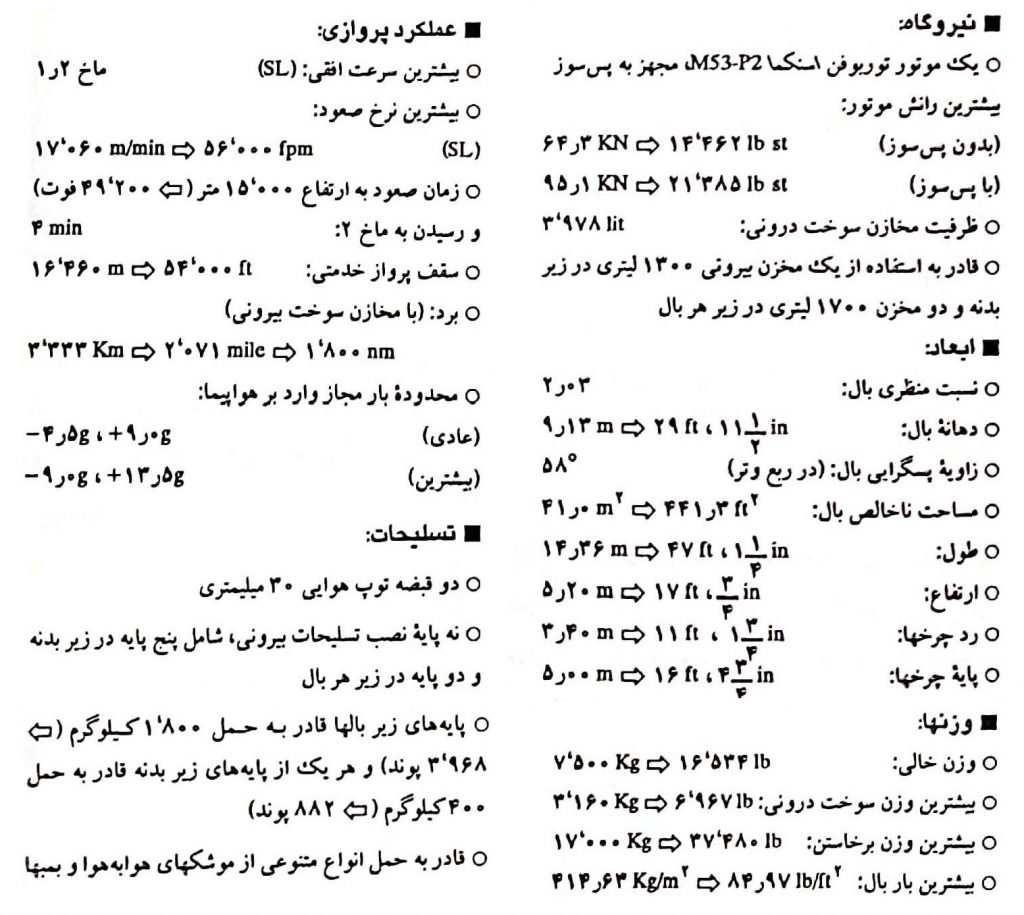 ■ نیروگاه:
○ یک موتور توربوفن \سنکما\ M53-P2، مجهز به پس‌سوز
بیشترین رانش موتور:
(بدون پس‌سوز) ۶۴ر۳ KN ⇨ ۱۴٬۴۶۲ lb st
(با پس‌سوز) ۹۵ر۱ KN ⇨ ۲۱٬۳۸۵ lb st
○ ظرفیت مخازن سوخت درونی: ۳٬۹۷۸ lit
○ قادر به استفاده از یک مخزن بیرونی ۱۳۰۰ لیتری در زیر
بدنه و دو مخزن ۱۷۰۰ لیتری در زیر هر بال
■ ابعاد:
○ نسبت منظری بال: ۲ر۰۳
○ دهانهٔ بال: ۹ر۱۳ m ⇨ ۲۹ ft ، ۱۱ ۱/۲ in
○ زاویهٔ پسگرایی بال: (در ربع وتر) ۵۸°
○ مساحت ناخالص بال: ۴۱ر۰ m۲ ⇨ ۴۴۱ر۳ ft۲
○ طول: ۱۴ر۳۶ m ⇨ ۴۷ ft ، ۱ ۱/۴ in
○ ارتفاع: ۵ر۲۰ m ⇨ ۱۷ ft ، ۳/۴ in
○ رد چرخها: ۳ر۴۰ m ⇨ ۱۱ ft ، ۱ ۳/۴ in
○ پایهٔ چرخها: ۵ر۰۰ m ⇨ ۱۶ ft ، ۴ ۳/۴ in
■ وزنها:
○ وزن خالی: ۷٬۵۰۰ Kg ⇨ ۱۶٬۵۳۴ lb
○ بیشترین وزن سوخت درونی: ۳٬۱۶۰ Kg ⇨ ۶٬۹۶۷ lb
○ بیشترین وزن برخاستن: ۱۷٬۰۰۰ Kg ⇨ ۳۷٬۴۸۰ lb
○ بیشترین بار بال: ۴۱۴ر۶۳ Kg/m۲ ⇨ ۸۴ر۹۷ lb/ft۲
■ عملکرد پروازی:
○ بیشترین سرعت افقی: (SL) ماخ ۱ر۲
○ بیشترین نرخ صعود:
(SL) ۱۷٬۰۶۰ m/min ⇨ ۵۶٬۰۰۰ fpm
○ زمان صعود به ارتفاع ۱۵٬۰۰۰ متر (⇦ ۴۹٬۲۰۰ فوت)
و رسیدن به ماخ ۲: ۴ min
○ سقف پرواز خدمتی: ۱۶٬۴۶۰ m ⇨ ۵۴٬۰۰۰ ft
○ برد: (با مخازن سوخت بیرونی)
۳٬۳۳۳ Km ⇨ ۲٬۰۷۱ mile ⇨ ۱٬۸۰۰ nm
○ محدودهٔ بار مجاز وارد بر هواپیما:
(عادی) −۴ر۵g ، +۹ر۰g
(بیشترین) −۹ر۰g ، +۱۳ر۵g
■ تسلیحات:
○ دو قبضه توپ هوایی ۳۰ میلیمتری
○ نه پایهٔ نصب تسلیحات بیرونی، شامل پنج پایه در زیر بدنه
و دو پایه در زیر هر بال
○ پایه‌های زیر بالها قادر به حمل ۱٬۸۰۰ کیلوگرم (⇦
۳٬۹۶۸ پوند) و هر یک از پایه‌های زیر بدنه قادر به حمل
۴۰۰ کیلوگرم (⇦ ۸۸۲ پوند)
○ قادر به حمل انواع متنوعی از موشکهای هوابه‌هوا و بمبها